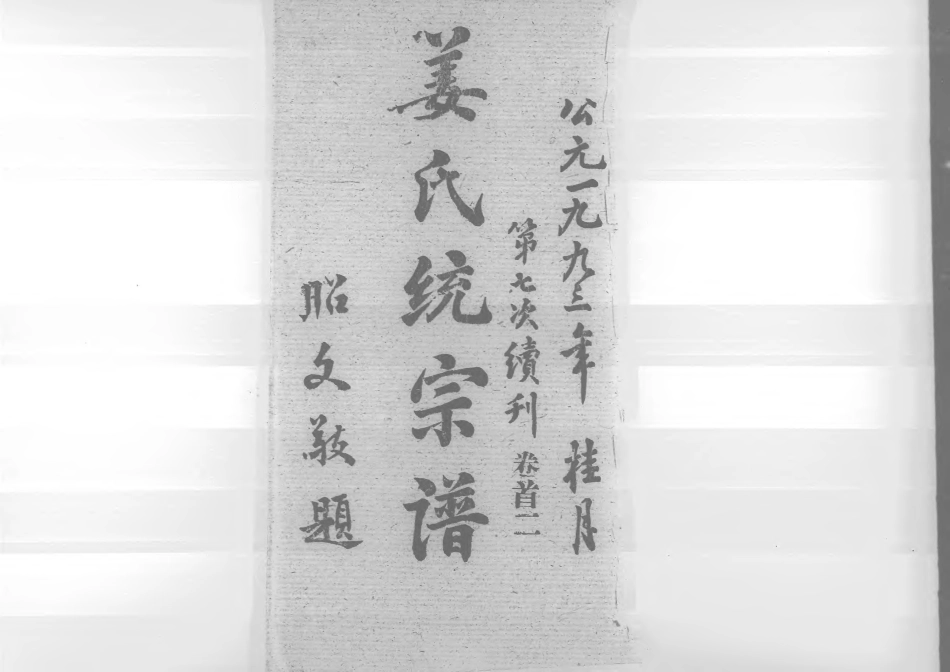 公元一九九三年 桂月
第七次續刊 卷首二
姜氏统宗谱
昭文敬題